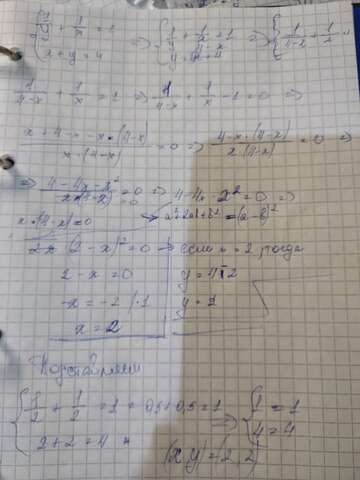 { 1/y + 1/x = 1 ; x + y = 4 => { 1/y + 1/x = 1 ; y = 4 - x => { 1/(4-x) + 1/x
1/(4-x) + 1/x = 1 => 1/(4-x) + 1/x - 1 = 0 =>
(x + 4 - x - x·(4-x)) / (x·(4-x)) = 0 => (4 - x·(4-x)) / (x·(4-x)) = 0 =>
=> (4 - 4x - x²) / (x·(4-x)) = 0 => 4 - 4x - x² = 0 =>
x·(4-x) = 0 a² - 2ab + b² = (a-b)²
(2-x)² = 0 -> если x = 2, тогда
2 - x = 0 y = 4 - 2
-x = -2 /·1 y = 2
x = 2
Подставляем
{ 1/2 + 1/2 = 1 = 0,5 + 0,5 = 1 ; 2 + 2 = 4 => { 1 = 1 ; 4 = 4
(x y) = (2, 2)